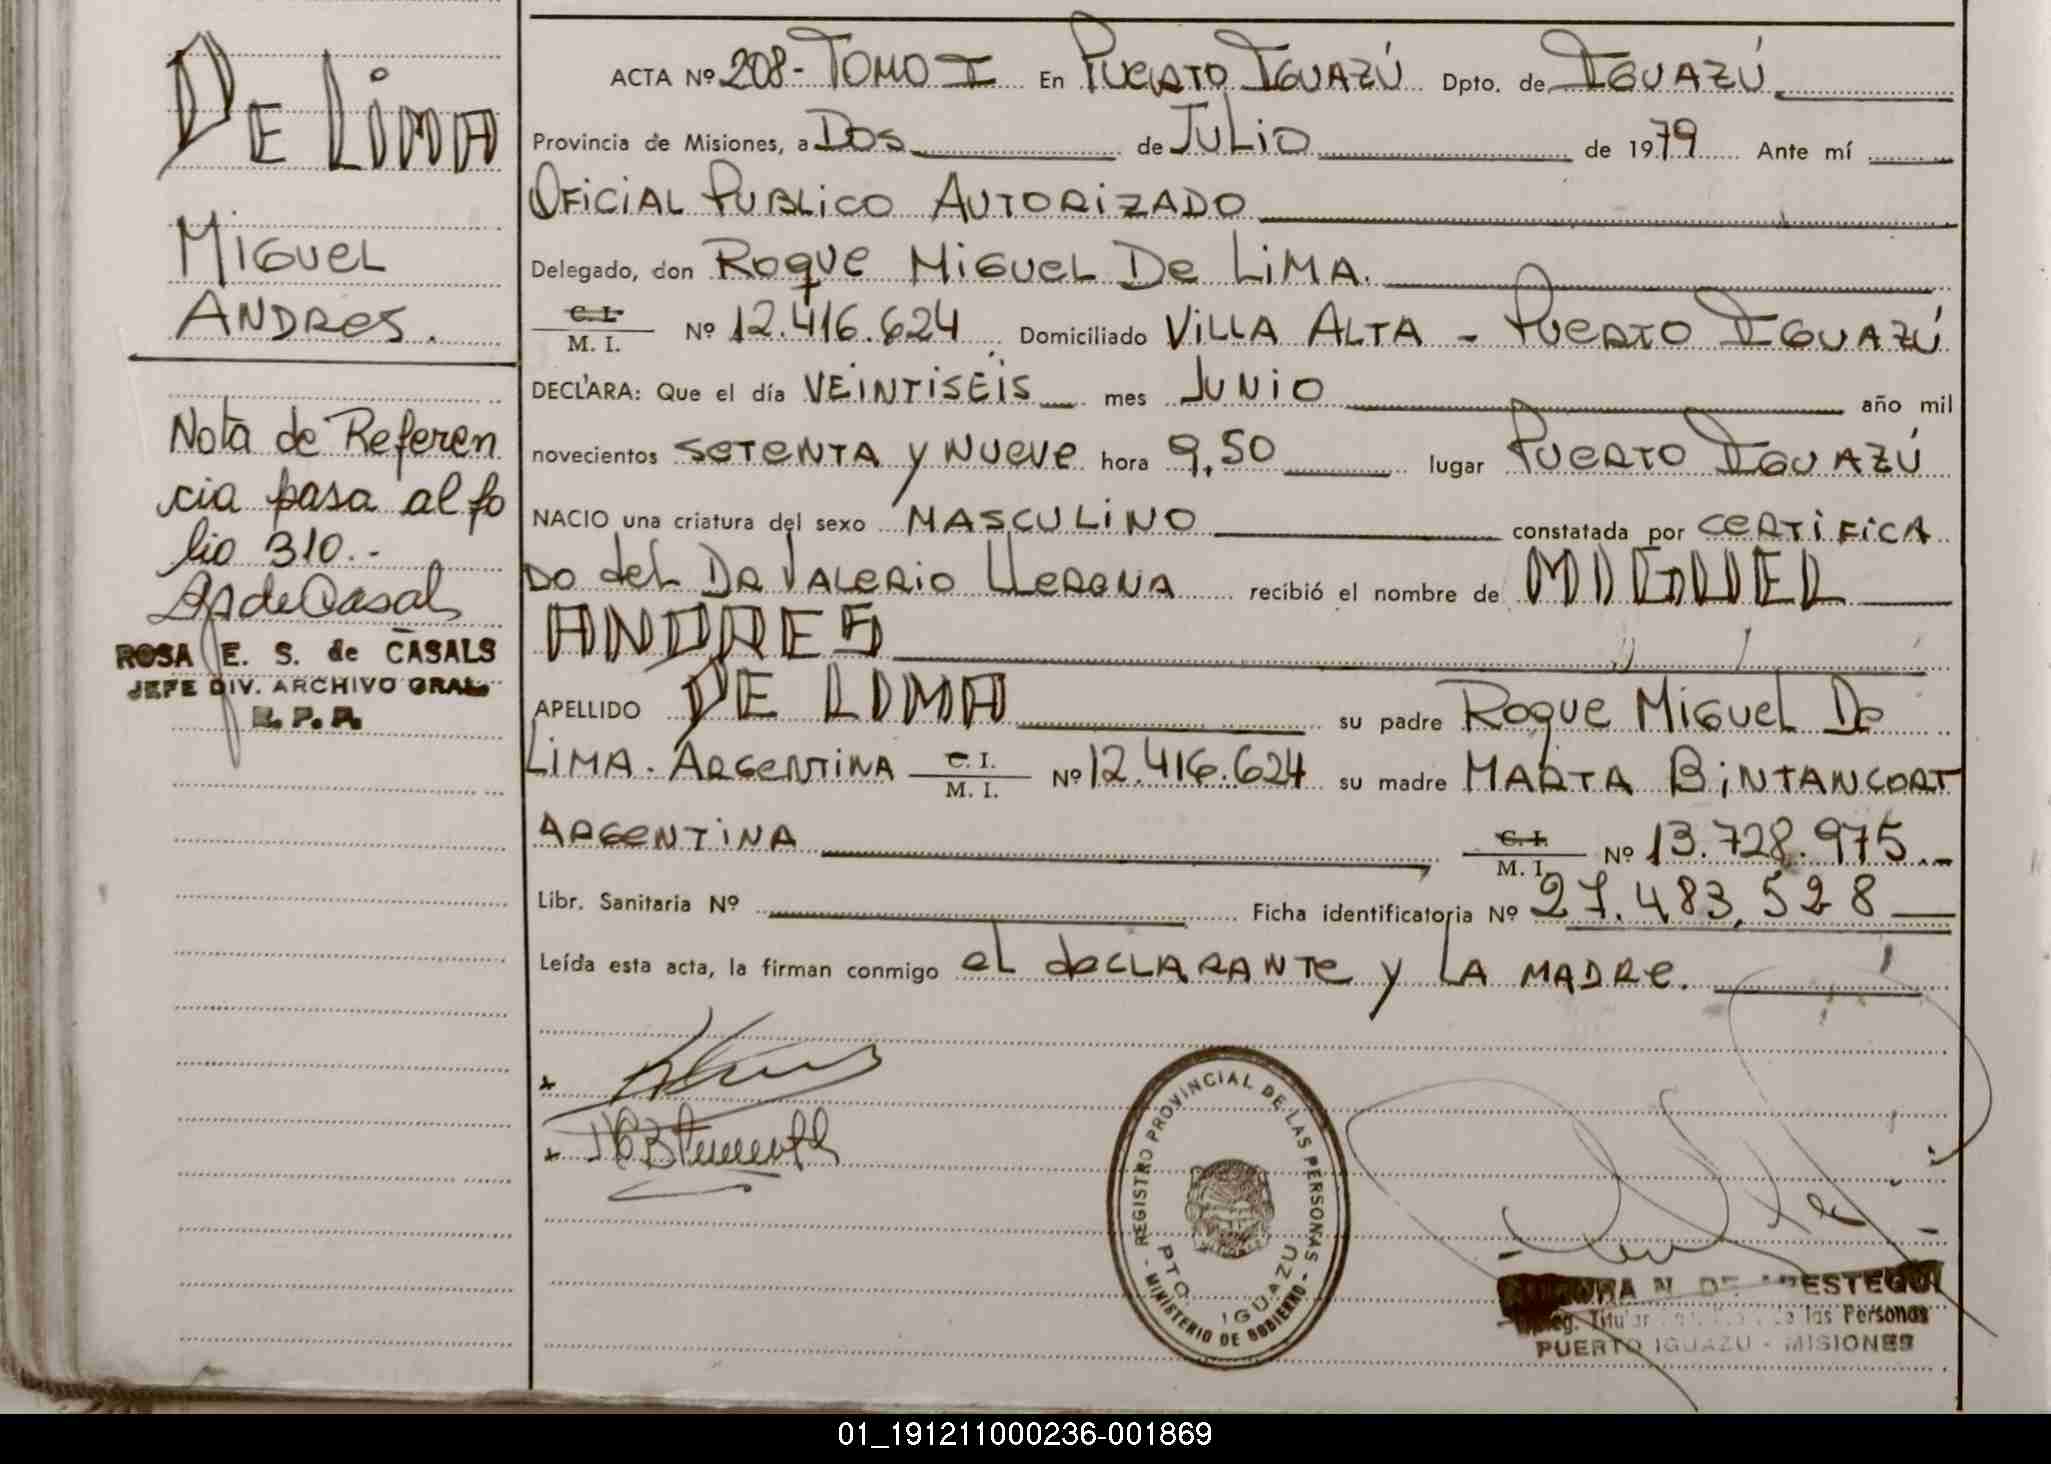 DE LiMA
MiGUEL
ANDRES.
Nota de Referen
cia pasa al fo
lio 310.-
ROSA E. S. de CASALS
JEFE DIV. ARCHIVO GRAL.
R. P. P.
ACTA Nº 208- TOMO I En PUERTO IGUAZÚ Dpto. de IGUAZÚ
Provincia de Misiones, a DOS de JULiO de 1979 Ante mí
OFiCiAL PUBLiCO AUTORiZADO
Delegado, don ROQUE MiGUEL DE LiMA.
C. I.
M. I. Nº 12.416.624 Domiciliado ViLLA ALTA - PUERTO IGUAZÚ
DECLARA: Que el día VEiNTiSEiS mes JUNiO año mil
novecientos SETENTA y NUEVE hora 9,50 lugar PUERTO IGUAZÚ
NACIO una criatura del sexo MASCULiNO constatada por CERTiFiCA
DO del DR VALERiO LLERENA recibió el nombre de MIGUEL
ANDRES
APELLIDO DE LIMA su padre ROQUE MiGUEL DE
LiMA. ARGENTiNA C. I.
M. I. Nº 12.416.624 su madre MARTA BiNTANCORT
ARGENTiNA C. I.
M. I. Nº 13.728.975
Libr. Sanitaria Nº Ficha identificatoria Nº 27.483.528
Leída esta acta, la firman conmigo el DECLARANTE y LA MADRE.
REGISTRO PROVINCIAL DE LAS PERSONAS
PTO. IGUAZU
- MINISTERIO DE GOBIERNO -
N. DE ESTEGUI
Titular las Personas
PUERTO IGUAZU - MISIONES
01_191211000236-001869